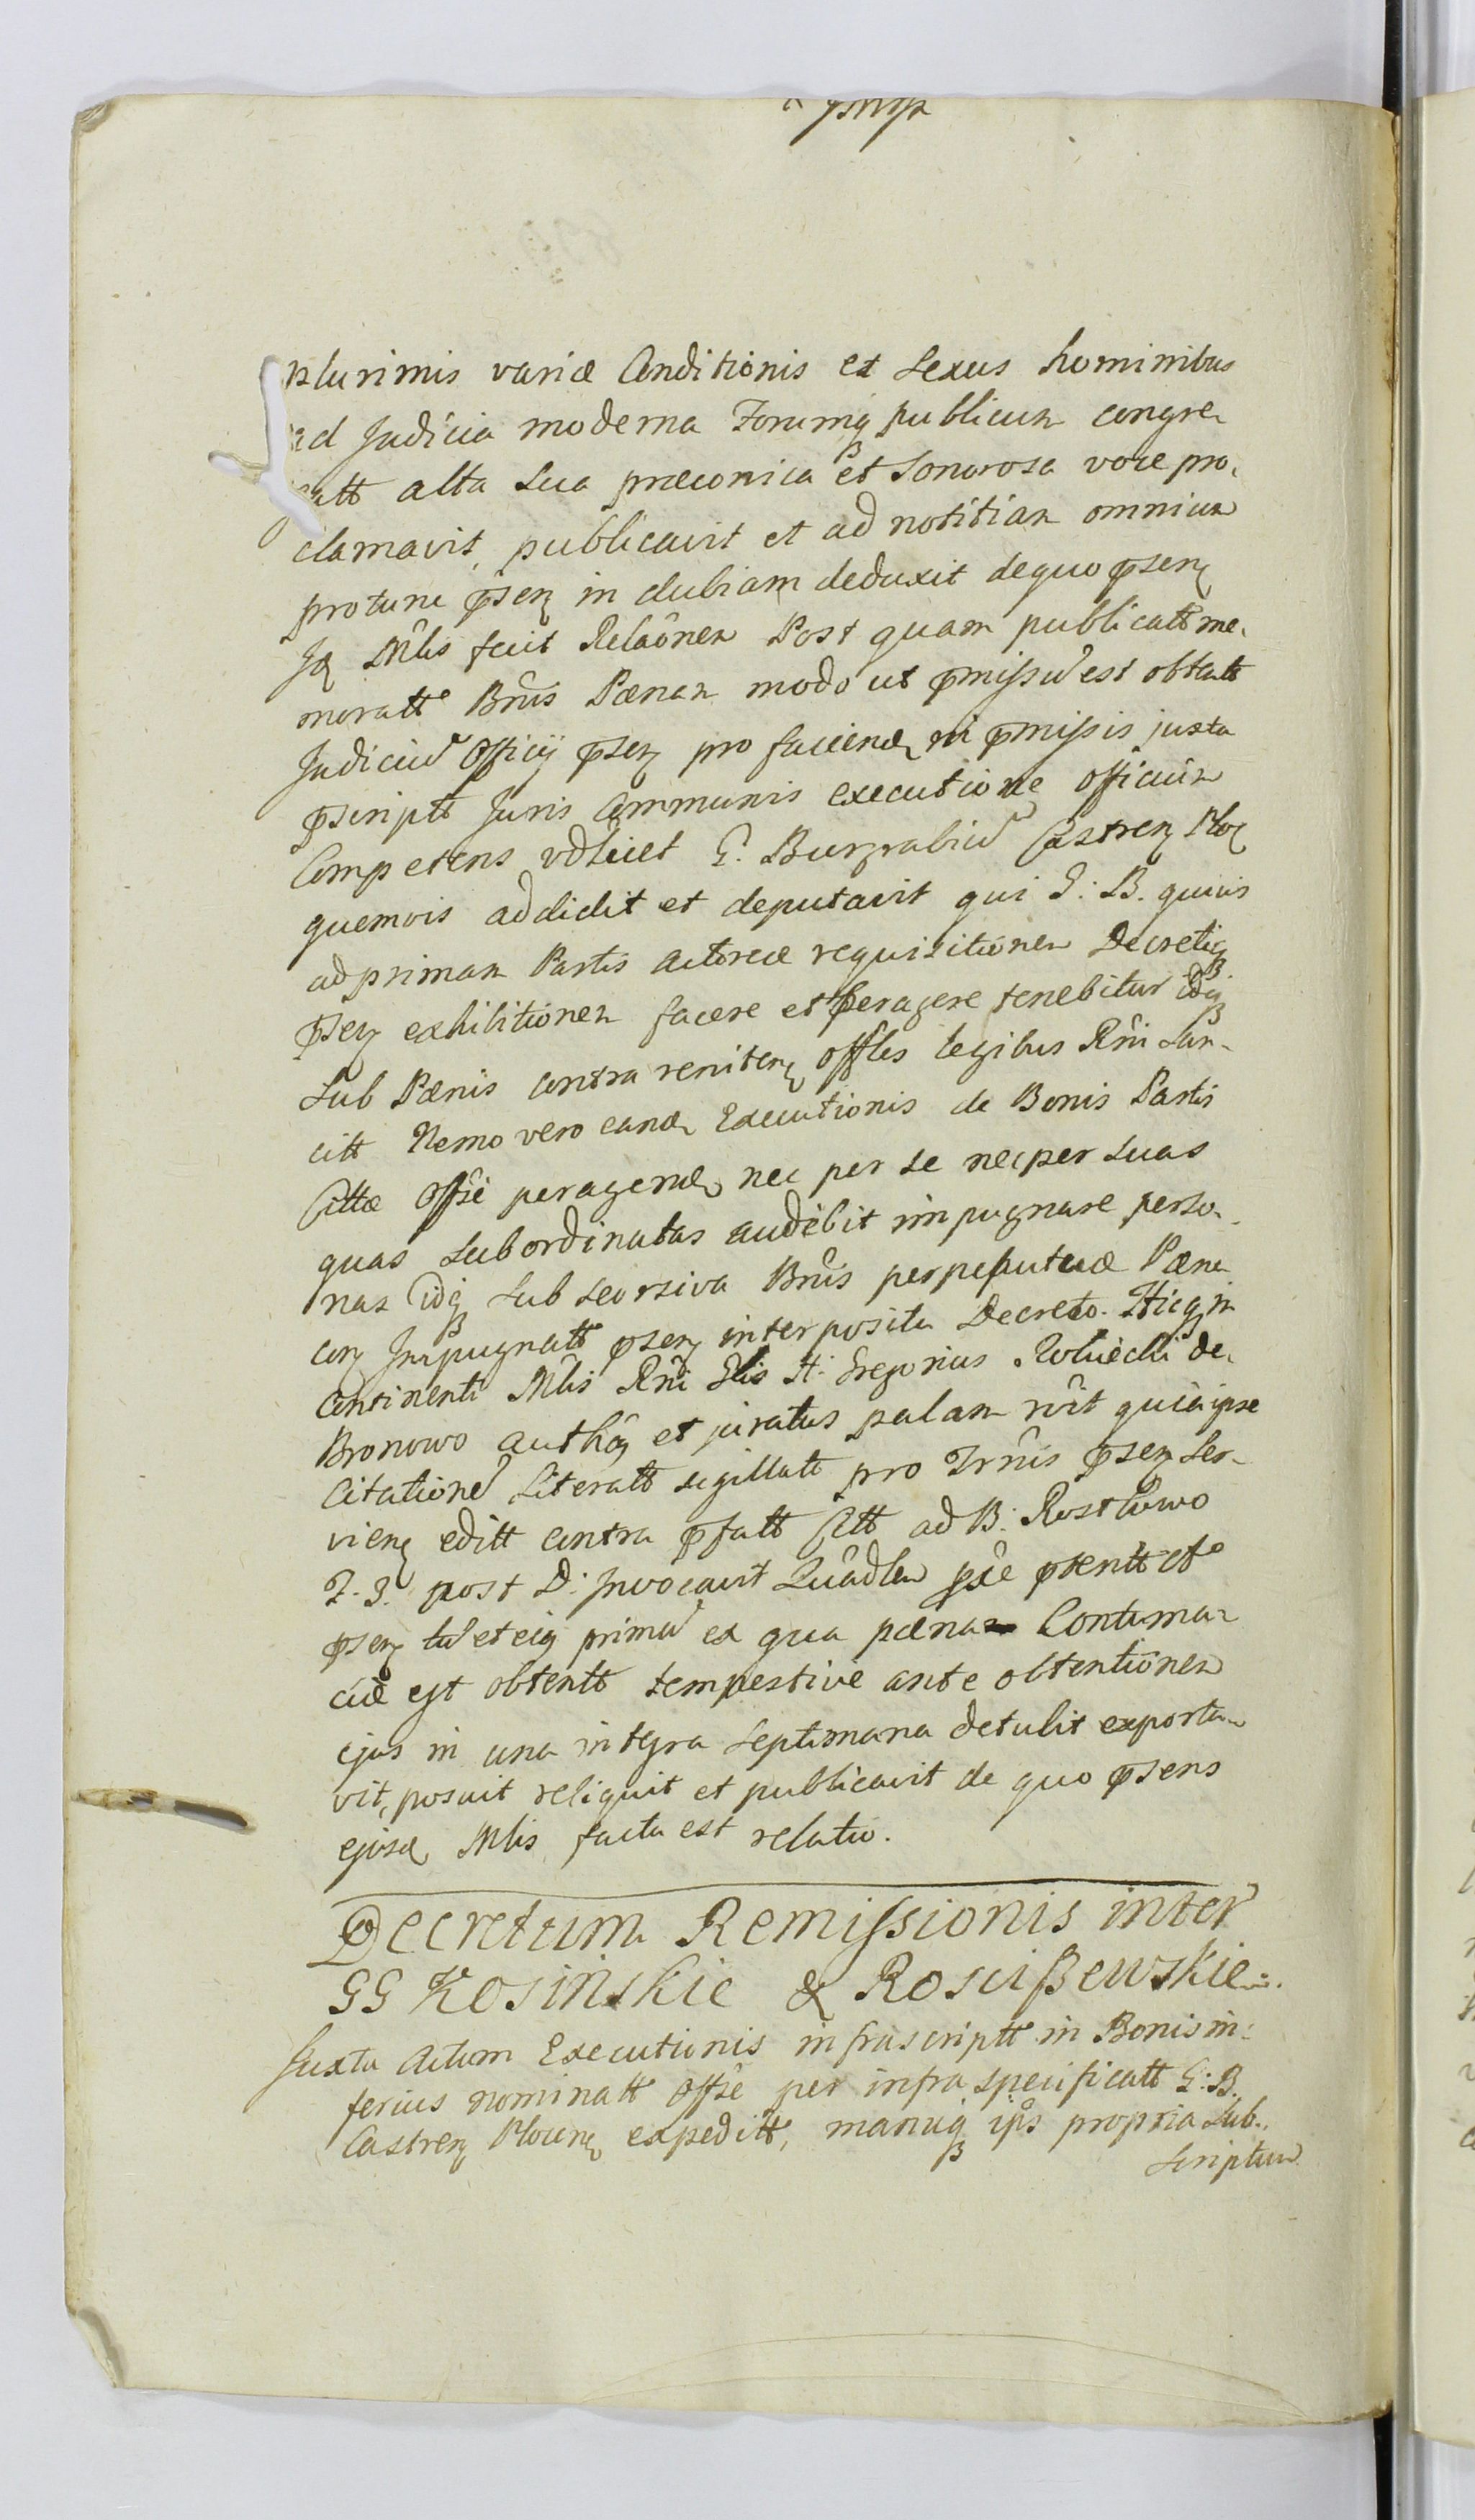 plurimis variæ Conditionis et Sexus hominibus
ad Judicia moderna Forumq publicum congre
gatt alta Sua præconica et Sonorosa voce pro
clamavit, publicavit et ad notitiam omnium
protunc pñseñ in dubiam deduxit dequo pñseñ
Jq Mlis fecit Relaõnem Post quam publicatt me
moratt Bñis Pænam modo ut pmissũ est obtentt
Judiciũ Officij pseñ pro faciend in pmissis juxta
pscriptt Juris Communis executione officium
Competens vdlicet G. Burgrabiũ Castreñ Ploc
quemvis addidit et deputavit qui G: B. quivis
ad primam Partis actoreæ requisitionem Decretiq
pseñ exhibitionem facere et peragere tenebitur idq
Sub Pænis contra reniteñ offles legibus Rñi San-
citt Nemo vero eand Executionis de Bonis Partis
Cittæ Offsê peragend nec per se nec per suas
quas Subordinatas audebit impugnare perso-
nas idq Sub seorsiva Bñis perpetuæ Pæna
con Impugnatt pseñ interposita Decreto. Hicq in
Continenti Mlis Rñi Glis H: Gregorius Roluiecki de
Bronowo authq et juratus palam rvit quia ipse
Citationẽ Literatt sigillatt pro Trñis pseñ Ser-
vieñ editt contra pfatt Citt ad B: Rostkowo
F. 3. post D: Invocavit Quadlem pxê psentt et
pseñ tũ et eiq primũ ex qua pæna Contuma
ciæ est obtentt tempestive ante obtentionem
ejus in una integra Septimana detulit exporta
vit, posuit reliquit et publicavit de quo psens
ejusd Mlis facta est relatio.
Decretum Remissionis inter
GG Kosinskie & Roscißewskie.
Juxta Actum Executionis infrascriptt in Bonis in:
ferius nominatt Offsê per infra specificatt G: B.
Castreñ Ploceñ expeditt, manuq ips propria Sub..
Scriptum